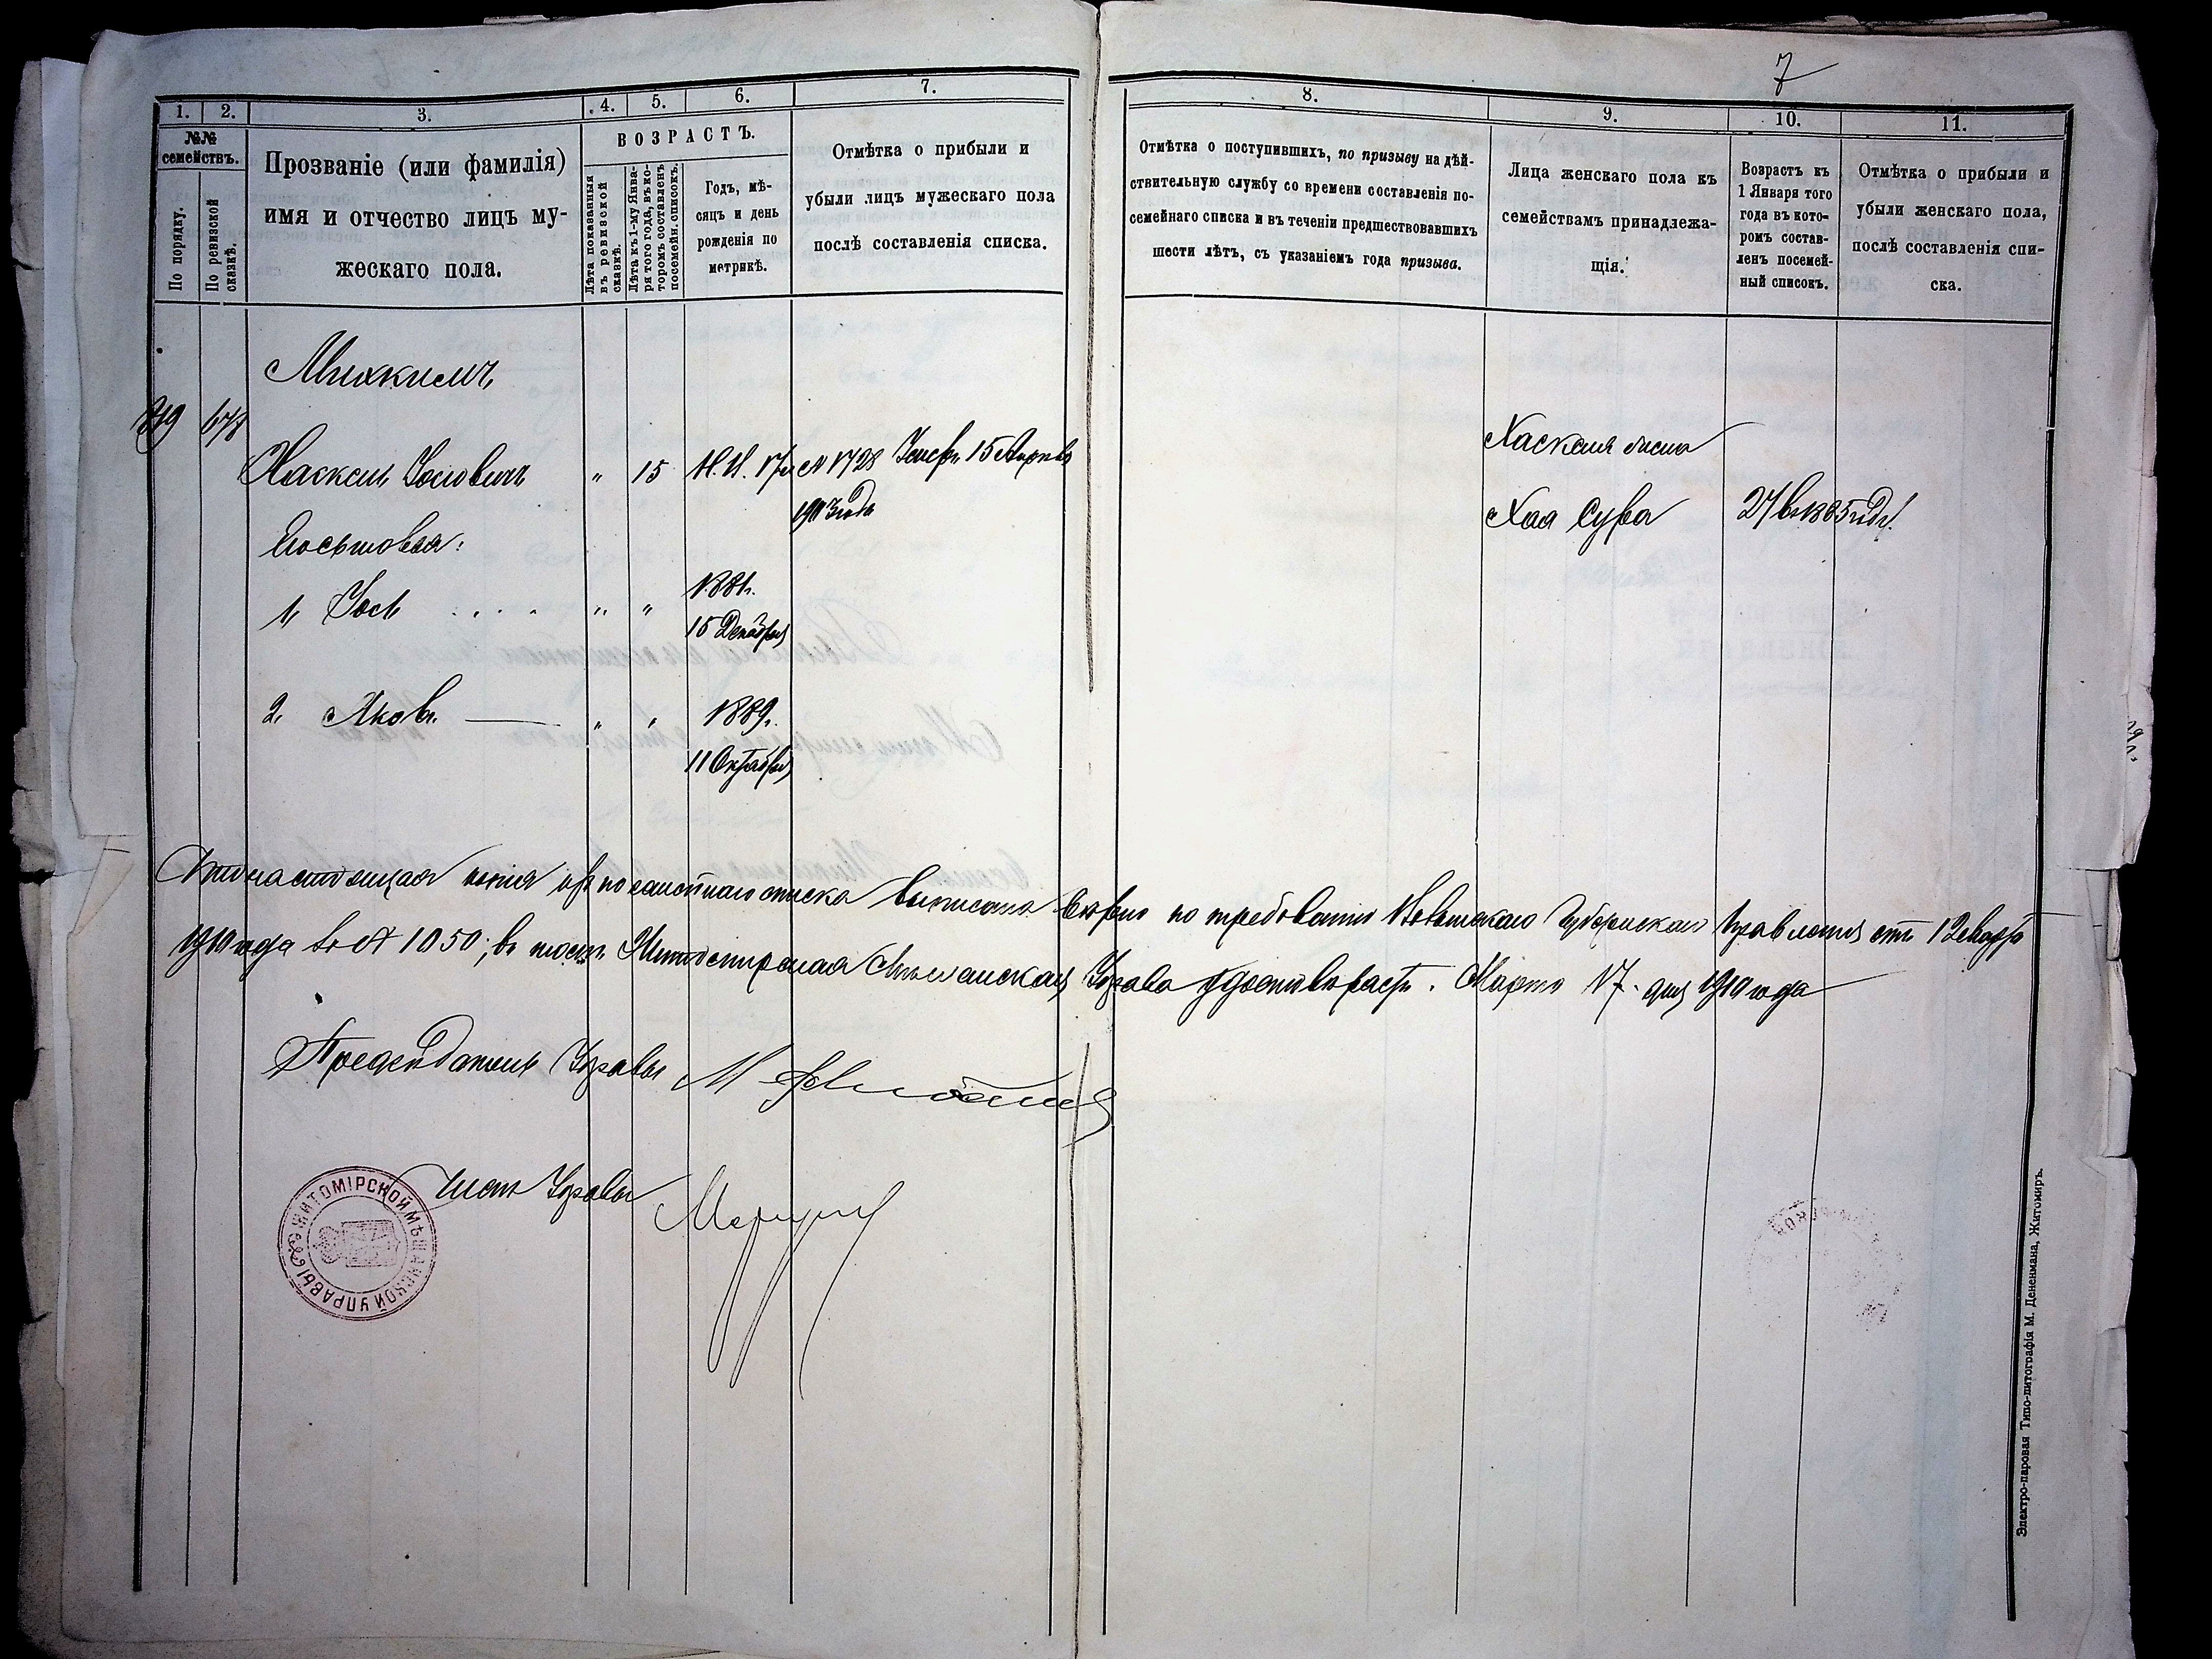 7
1. 2. 3. 4. 5. 6. 7.
№№ семействъ.
По порядку.
По ревизской сказкѣ.
Прозваніе (или фамилія)
имя и отчество лицъ му-
жескаго пола.
ВОЗРАСТЪ.
Лѣта показанныя
въ ревизской
сказкѣ.
Лѣта къ 1-му Янва-
ря того года, въ ко-
торомъ составленъ
посемейн. списокъ.
Годъ, мѣ-
сяцъ и день
рожденія по
метрикѣ.
Отмѣтка о прибыли и
убыли лицъ мужескаго пола
послѣ составленія списка.
8. 9. 10. 11.
Отмѣтка о поступившихъ, по призыву на дѣй-
ствительную службу со времени составленія по-
семейнаго списка и въ теченіи предшествовавшихъ
шести лѣтъ, съ указаніемъ года призыва.
Лица женскаго пола къ
семействамъ принадлежа-
щія.
Возрастъ къ
1 Января того
года въ кото-
ромъ состав-
ленъ посемей-
ный списокъ.
Отмѣтка о прибыли и
убыли женскаго пола,
послѣ составленія спи-
ска.
678
Хаскель Іосіовичъ " 15
Хаскеля жена
Хая Сура 27 въ 1885 году.
1, Іось . . . . " " 1881.
15 Декабря
2. Яковъ " " 1889.
11 Октября
Что настоящая копія изъ посемейнаго списка выписана вѣрно по требованію Волынскаго Губернскаго Правленія отъ 12 Марта
1910 года за № 1050; въ томъ Житомирская Мѣщанская Управа удостовѣряетъ. Марта 17 дня 1910 года
Предсѣдатель Управы
Членъ Управы
ЖИТОМІРСКОЙ МѢЩАНСКОЙ УПРАВЫ
Электро-паровая Типо-литографія М. Дененмана, Житомиръ.